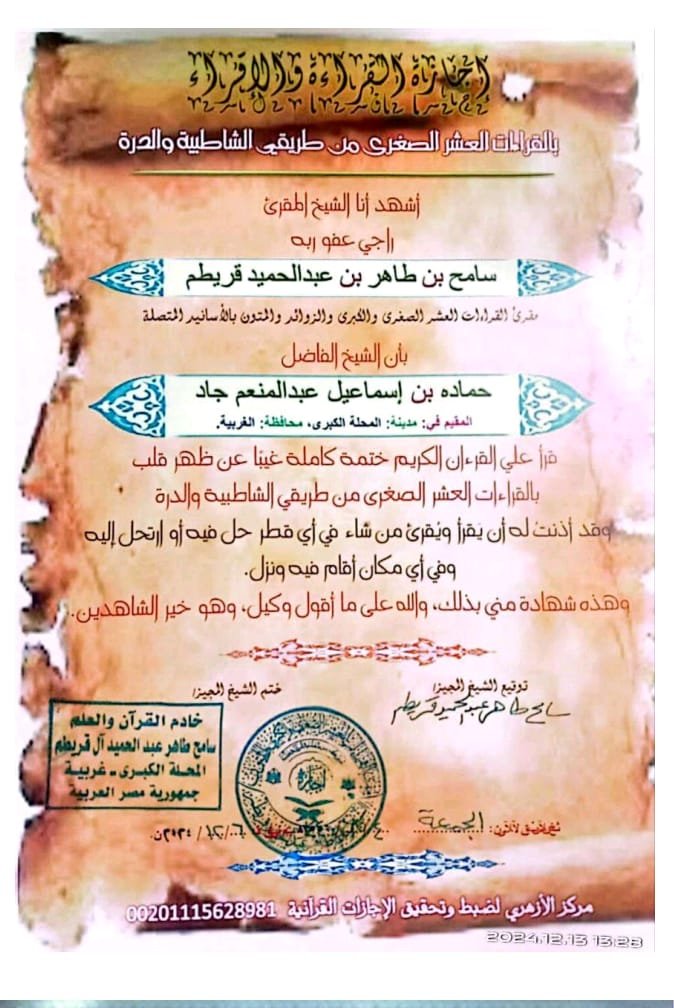 إجازة القراءة والإقراء
بالقراءات العشر الصغرى من طريقي الشاطبية والدرة
أشهد أنا الشيخ المقرئ
راجي عفو ربه
سامح بن طاهر بن عبدالحميد قريطم
مقرئ القراءات العشر الصغرى والكبرى والزوائد والمتون بالأسانيد المتصلة
بأن الشيخ الفاضل
حماده بن إسماعيل عبدالمنعم جاد
المقيم في: مدينة: المحلة الكبرى، محافظة: الغربية.
قرأ علي القرءان الكريم ختمة كاملة غيبًا عن ظهر قلب
بالقراءات العشر الصغرى من طريقي الشاطبية والدرة
وقد أذنتُ له أن يَقرأ ويُقرئ من شاء في أي قطر حل فيه أو إرتحل إليه
وفي أي مكان أقام فيه ونزل.
وهذه شهادة مني بذلك، والله على ما أقول وكيل، وهو خير الشاهدين.
توقيع الشيخ المجيز:
ختم الشيخ المجيز:
سامح طاهر عبدالحميد قريطم
خادم القرآن والعلم
سامح طاهر عبد الحميد آل قريطم
المحلة الكبرى - غربية
جمهورية مصر العربية
إجازة
الجمعة
مركز الأزهري لضبط وتحقيق الإجازات القرآنية 00201115628981
2024.12.13 13:28